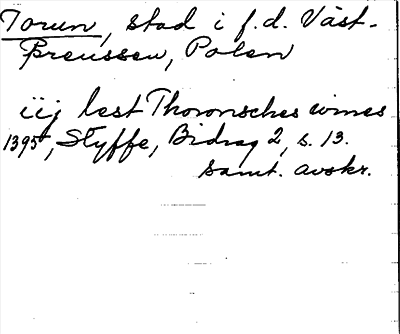 Torun, stad i f.d. Väst-
Preussen, Polen
iij lest Thoronsches wines
1395, Styffe, Bidrag 2, s. 13.
samt. avskr.